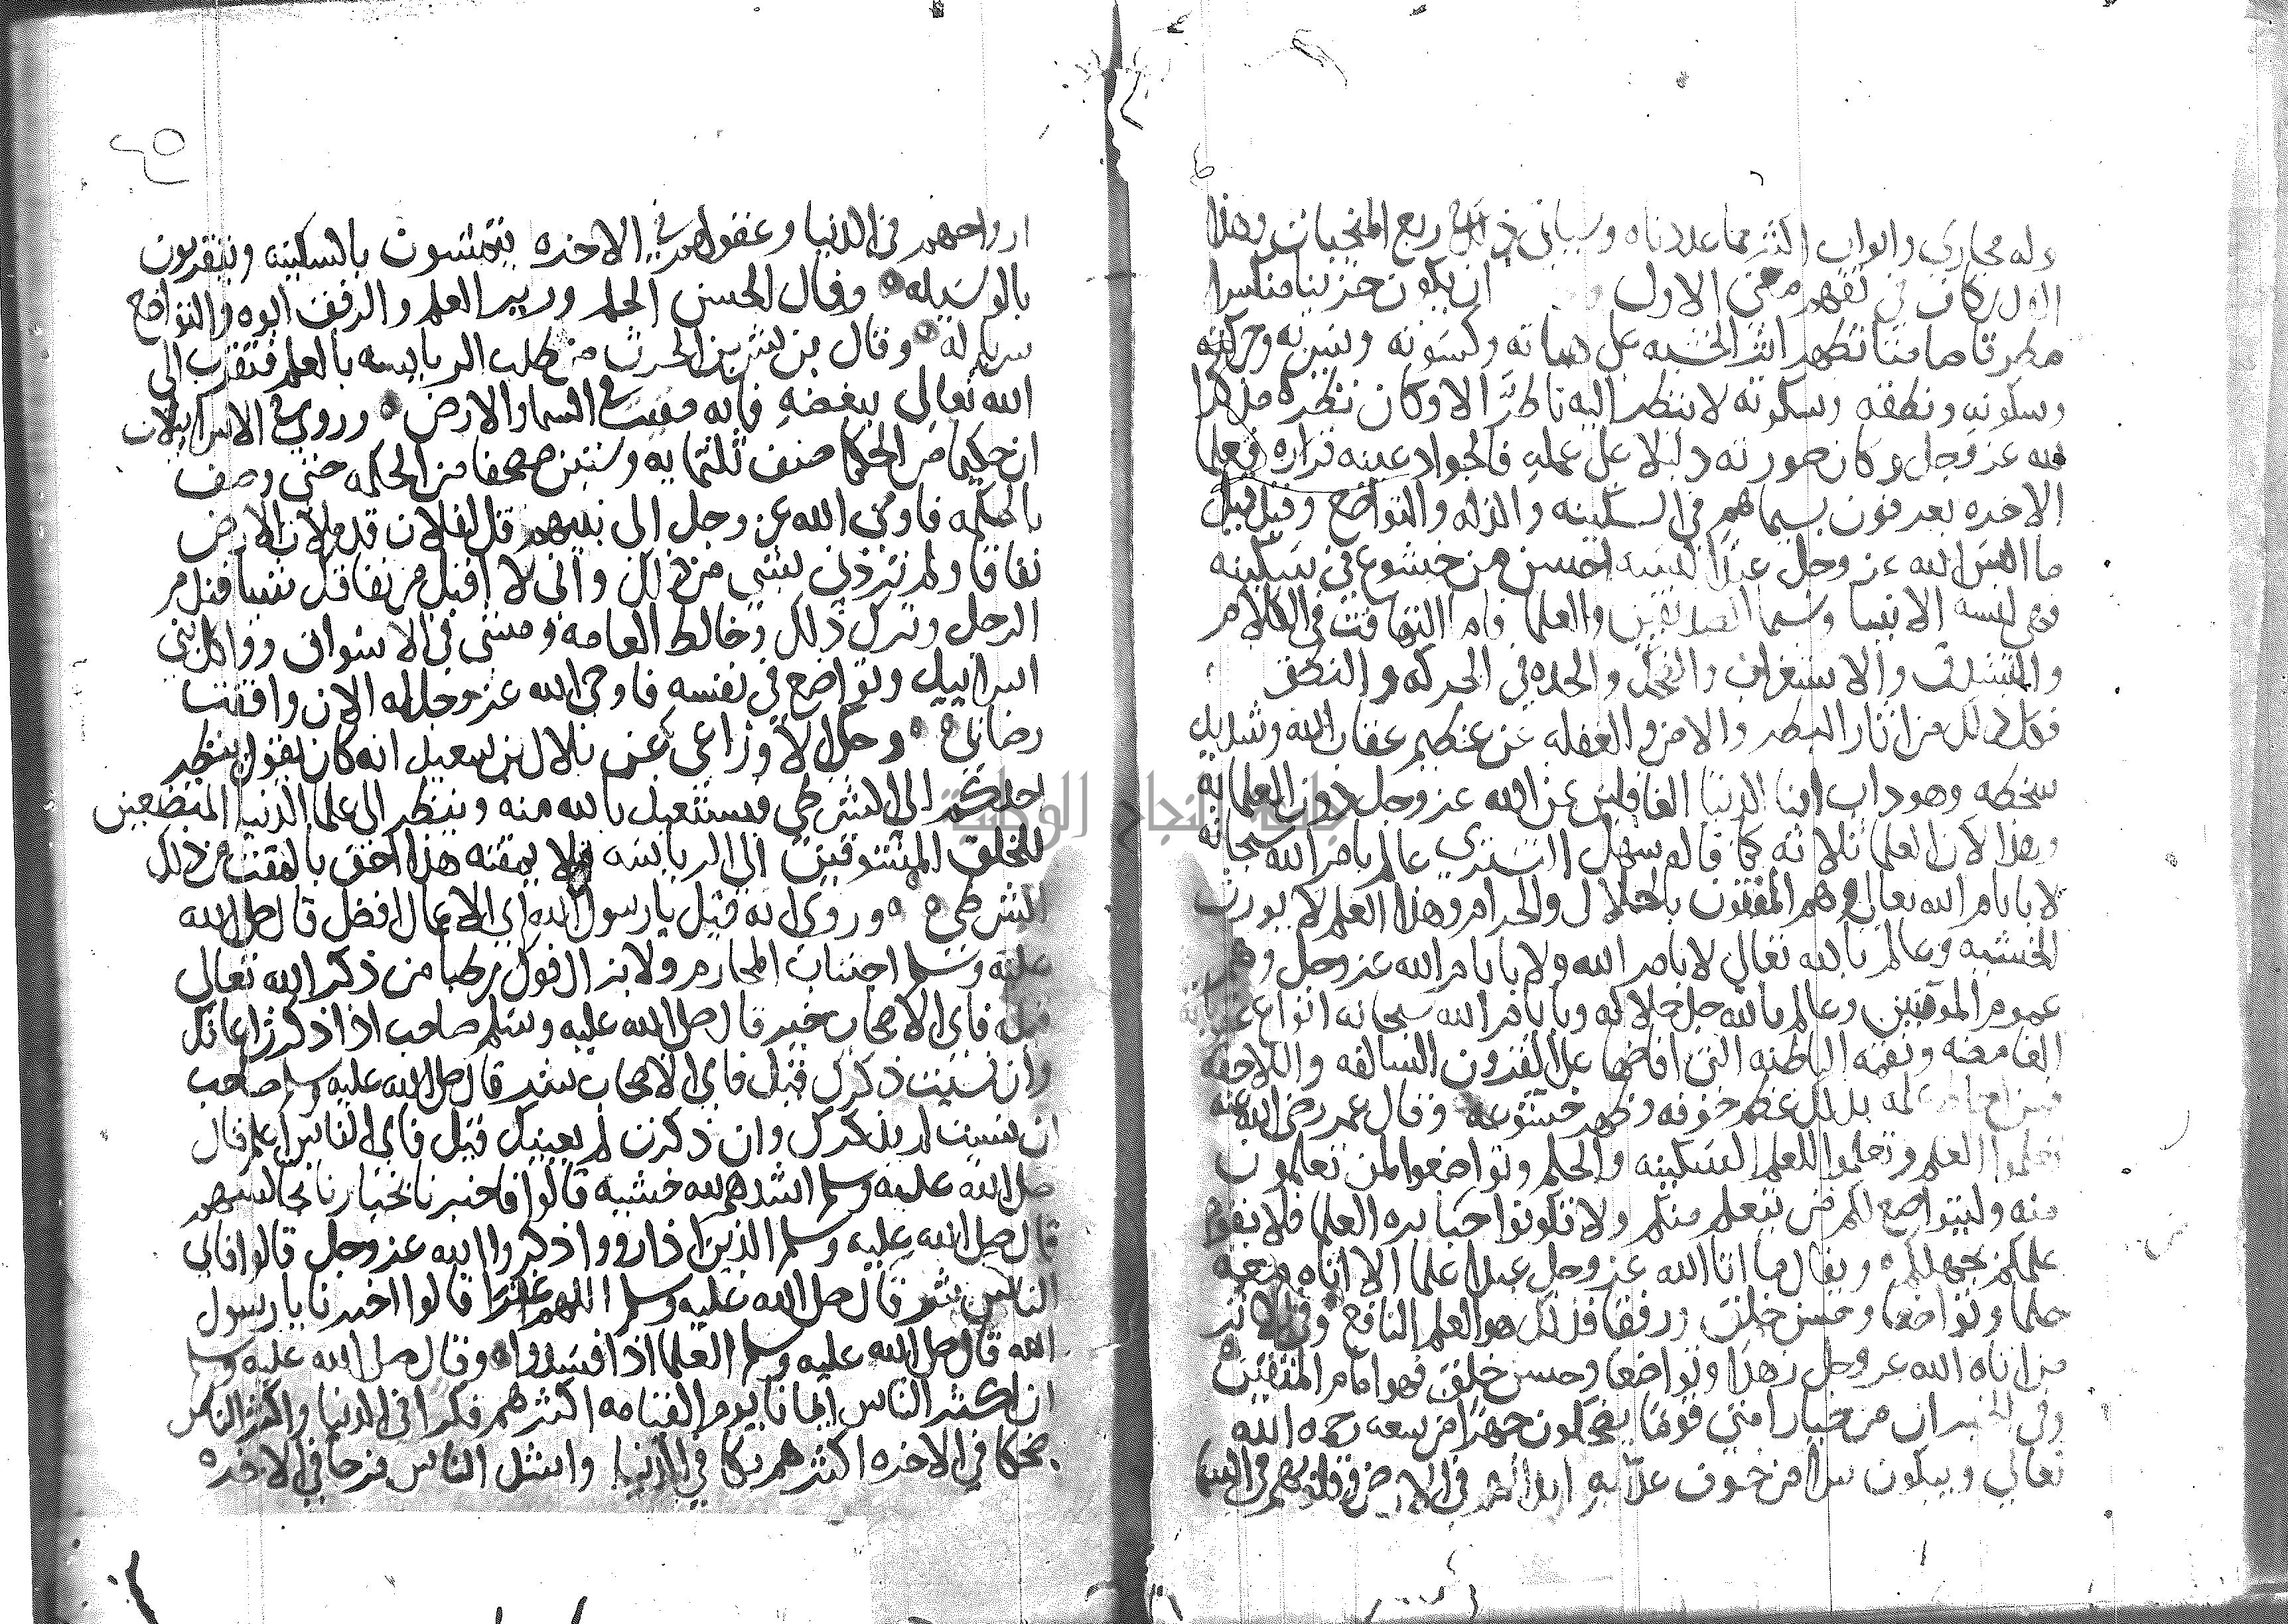 وله مجاري وابواب اكثر مما عددناه وسياتي في ذلك ربع المنجيات وهذا
القدر كان في تفهم معنى الاول ان يكون حزينا منكسرا
مطرقا صامتا تظهر اثر الخشيه على هياته وكسوته وسيرته وحركته
وسكونه ونطقه وسكوته لا ينظر اليه ناظر الا وكان نظره مذكرا
لله عز وجل وكان صورته دليلا على عمله فالجواد عينه فراره فعلما
الاخره يعرفون بسيماهم في السكينه والذله والتواضع وقيل
ما البس الله عز وجل عبدا لبسه احسن من خشوع في سكينه
فهي لبسه الانبيا وسيما الصديقين والعلما فاما التهافت في الكلام
والتشدق والاستغراق والضحك والحده في الحركه والنطق
فكل ذلك من اثار البطر والامن والغفله عن عظيم عقاب الله وشديد
سخطه وهو داب ابنا الدنيا الغافلين عن الله عز وجل دون العلما به
وهذا لان العلما ثلاثه كما قاله سهل التستري عالم بامر الله سبحانه
لا بايام الله تعالى وهم المفتون بالحلال والحرام وهذا العلم لا يورث
الخشيه وعالم بالله تعالى لا بامر الله ولا بايام الله عز وجل وهم
عموم المومنين وعالم بالله جل جلاله وبايام الله سبحانه انواع عقوباته
الغامضه ونعمه الباطنه التي افاضها على القرون السالفه واللاحقه
فمن احاط علمه بذلك عظم خوفه وظهر خشوعه وقال عمر رضي الله عنه
تعلموا العلم وتعلموا للعلم السكينه والحلم وتواضعوا لمن تعلمون
منه وليتواضع لكم من يتعلم منكم ولا تكونوا جبابره العلما فلا يقوم
علمكم بجهلكم ويقال ما اتا الله عز وجل عبدا علما الا اتاه معه
حلما وتواضعا وحسن خلق ورفقا فذلك هو العلم النافع وفي الاثر
من اتاه الله عز وجل زهدا وتواضعا وحسن خلق فهو امام المتقين
وفي الخبر ان من خيار امتي قوما يضحكون جهرا من سعه رحمه الله
تعالى ويبكون سرا من خوف عذابه ابدانهم في الارض وقلوبهم في السما
ارواحهم في الدنيا وعقولهم في الاخره يتمشون بالسكينه ويتقربون
بالوسيله وقال الحسن الحلم وزير العلم والرفق ابوه والتواضع
سرباله وقال بن بشر بن الحرث من طلب الرياسه بالعلم فتقرب الى
الله تعالى ببغضه فانه مقيت في السما والارض وروي في الاسرائيلات
ان حكيما من الحكما صنف ثلثمايه وستين مصحفا من الحكمه حتى وصف
بالحكمه فاوحى الله عز وجل الى نبيهم قل لفلان قد ملات الارض
نفاقا ولم تردني بشي من ذلك واني لا اقبل من نفاقك شيا فندم
الرجل وترك ذلك وخالط العامه ومشى في الاسواق وواكل بني
اسراييل وتواضع في نفسه فاوحى الله عز وجل له الان وافقت
رضاي وحكى الاوزاعي عن بلال بن سعيد انه كان يقول ينظر
احدكم الى الشرطي فيستعيذ بالله منه وينظر الى علما الدنيا المتصنعين
للخلق المتشوقين الى الرياسه ولا يمقته هذا احق بالمقت من ذلك
الشرطي وروي انه قيل يا رسول الله اي الاعمال افضل قال صلى الله
عليه وسلم اجتناب المحارم ولا يزال فوك رطبا من ذكر الله تعالى
قيل فاي الاصحاب خير قال صلى الله عليه وسلم صاحب اذا ذكرت اعانك
وان نسيت ذكرك قيل فاي الاصحاب شر قال صلى الله عليه وسلم صاحب
ان نسيت لم يذكرك وان ذكرت لم يعينك قيل فاي الناس اعلم قال
صلى الله عليه وسلم اشدهم لله خشيه قالوا فاخبرنا بخيارنا نجالسهم
قال صلى الله عليه وسلم الذين اذا رووا ذكروا الله عز وجل قالوا فاي
الناس شر قال صلى الله عليه وسلم اللهم غفرا قالوا اخبرنا يا رسول
الله قال صلى الله عليه وسلم العلما اذا فسدوا وقال صلى الله عليه وسلم
ان اكثر الناس امانا يوم القيامه اكثرهم فكرا في الدنيا واكثر الناس
ضحكا في الاخره اكثرهم بكا في الدنيا واشد الناس فرحا في الاخره